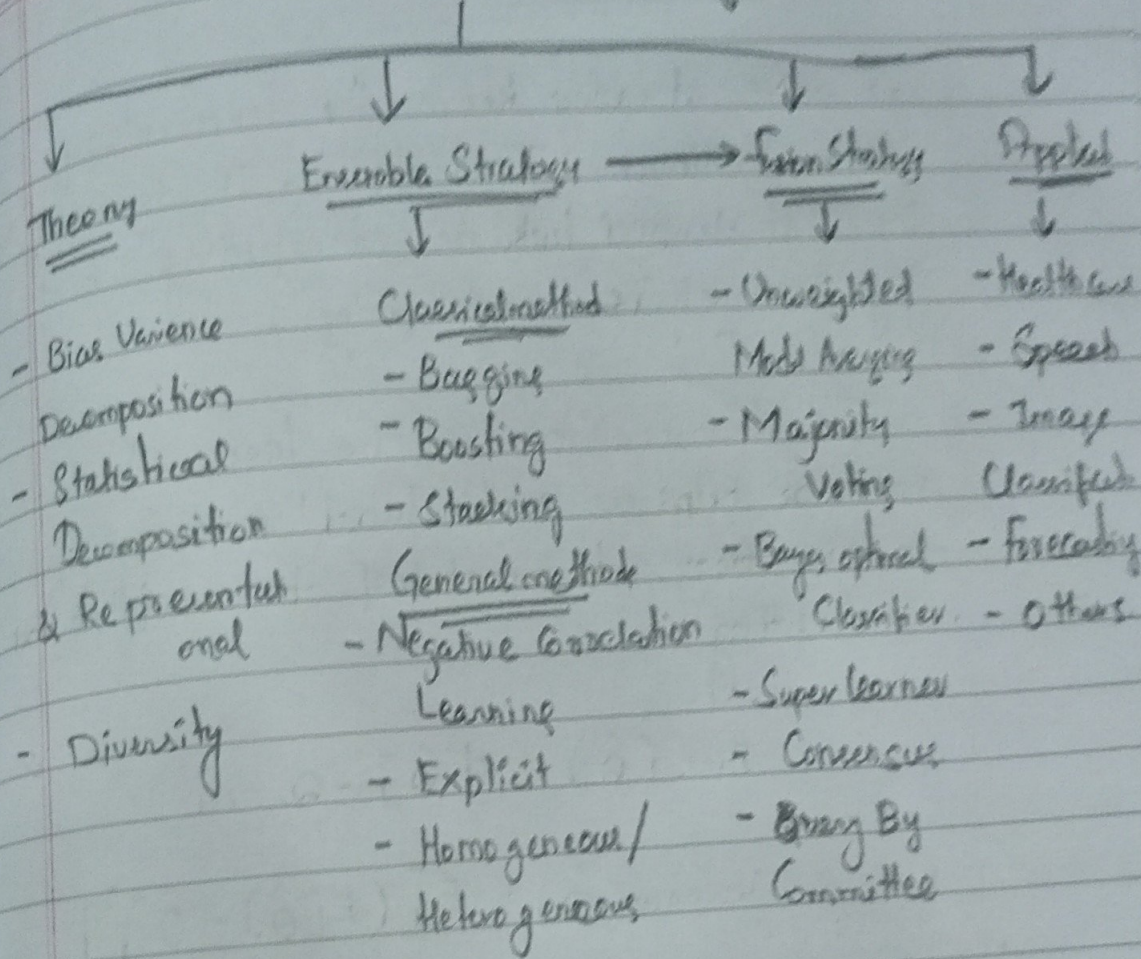 Theory
- Bias Varience
Decomposition
- Statistical
Decomposition
& Representati
onal
- Diversity
Ensemble Strategy
Classical method
- Bagging
- Boosting
- Stacking
General methods
- Negative Correlation
Learning
- Explicit
- Homogeneous/
Heterogeneous
Fusion Strategy
- Unweighted
Model Averging
- Majority
Voting
- Bayes optimal
Classifier
- Super learner
- Consensus
- Query By
Committee
Applied
- Healthcare
- Speech
- Image
- Forecasting
- Others